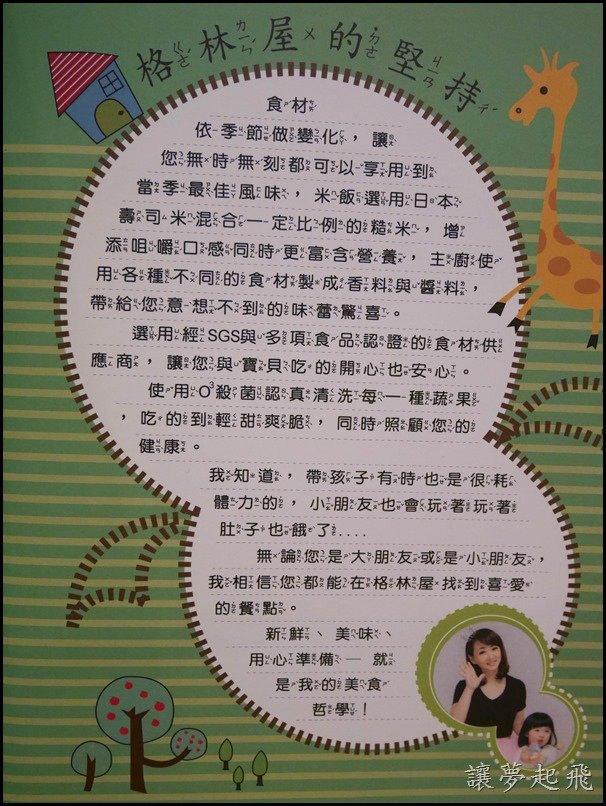 格林屋的堅持
食材
依季節做變化，讓
您無時無刻都可以享用到
當季最佳風味，米飯選用日本
壽司米混合一定比例的糙米，增
添咀嚼口感同時更富含營養，主廚使
用各種不同的食材製成香料與醬料，
帶給您意想不到的味蕾驚喜。
選用經SGS與多項食品認證的食材供
應商，讓您與寶貝吃的開心也安心。
使用O³殺菌認真清洗每一種蔬果
，吃的到輕甜爽脆，同時照顧您的
健康。
我知道，帶孩子有時也是很耗
體力的，小朋友也會玩著玩著
肚子也餓了....
無論您是大朋友或是小朋友，
我相信您都能在格林屋找到喜愛
的餐點。
新鮮、美味、
用心準備─就
是我的美食
哲學！
讓夢起飛